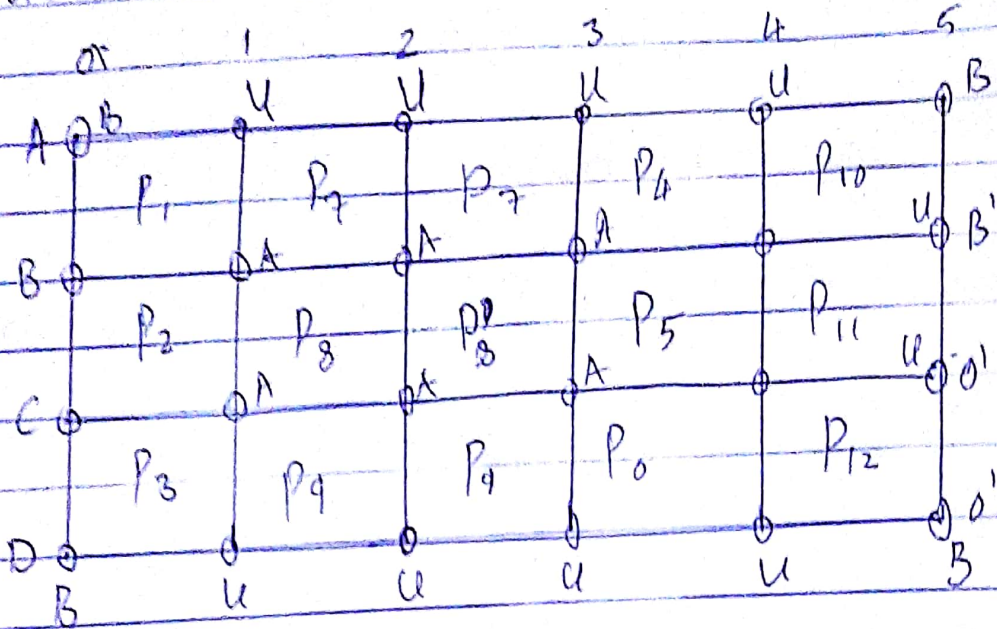 1 2 3 4 5
A B U U U U B
P1 P7 P7 P4 P10
B A A A U B'
P2 P8 P8 P5 P11
C A A A U O'
P3 P9 P9 P0 P12
D O'
B U U U U B